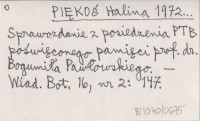 PIĘKOŚ Halina 1972...
Sprawozdanie z posiedzenia PTB
poświęconego pamięci prof. dr.
Bogumiła Pawłowskiego. —
Wiad. Bot. 16, nr 2: 147.